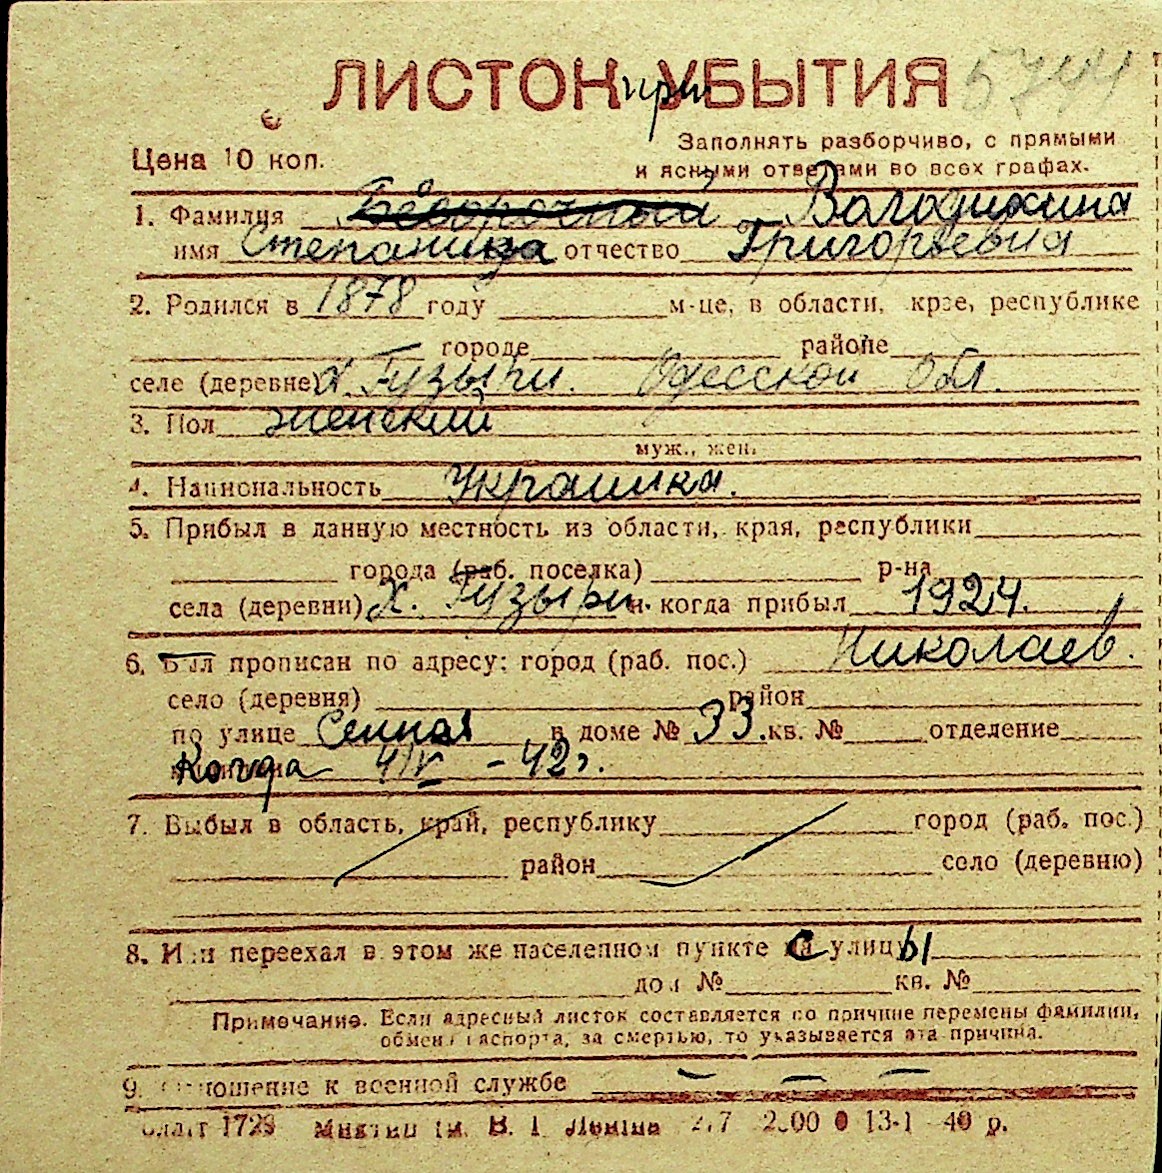 ЛИСТОК при УБЫТИЯ 5744
Цена 10 коп.
Заполнять разборчиво, с прямыми
и ясными ответами во всех графах.
1. Фамилия Володихина
имя Степанида отчество Григорьевна
2. Родился в 1878 году м-це, в области, крае, республике
городе районе
селе (деревне) х. Гузыри. Одесской обл.
3. Пол женский
муж., жен.
4. Национальность Украинка.
5. Прибыл в данную местность из области, края, республики
города (раб. поселка) р-на
села (деревни) х. Гузыри. и когда прибыл 1924.
6. Был прописан по адресу: город (раб. пос.) Николаев.
село (деревня) район
по улице Сенная в доме № 33. кв. № отделение
Когда 4/V - 42г.
7. Выбыл в область, край, республику город (раб. пос.)
район село (деревню)
8. Или переехал в этом же населенном пункте с улицы
дом № кв. №
Примечание. Если адресный листок составляется по причине перемены фамилии,
обмена паспорта, за смертью, то указывается эта причина.
9. Отношение к военной службе — — —
1729 В. Леніна 13-1 40 р.